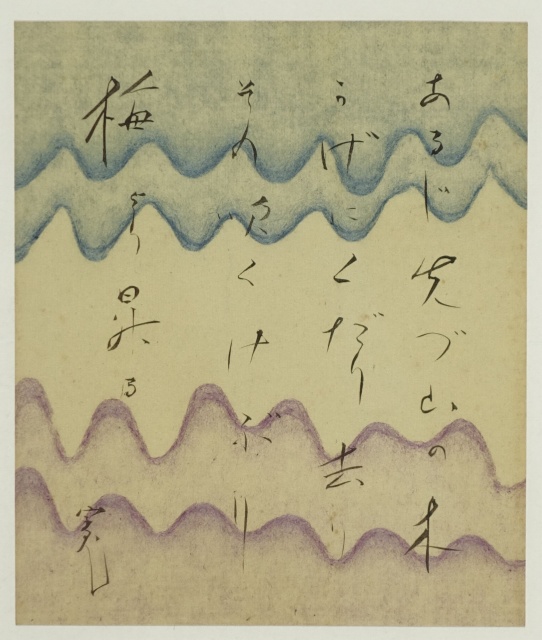 あるじ先づ山の木
かげにくだり去り
その吹くけぶり
梅より昇る
寛